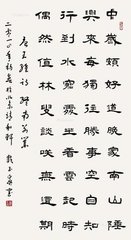 中歲頗好道晚家南山陲
興來每獨往勝事空自知
行到水窮處坐看雲起時
偶然值林叟談笑無還期
唐王維詩